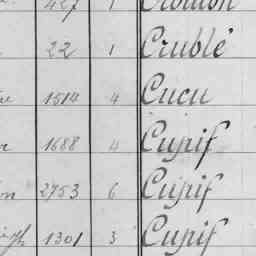 427 1
22 1 Crublé
1514 4 Cucu
1688 4 Cupif
2753 6 Cupif
1301 3 Cupif